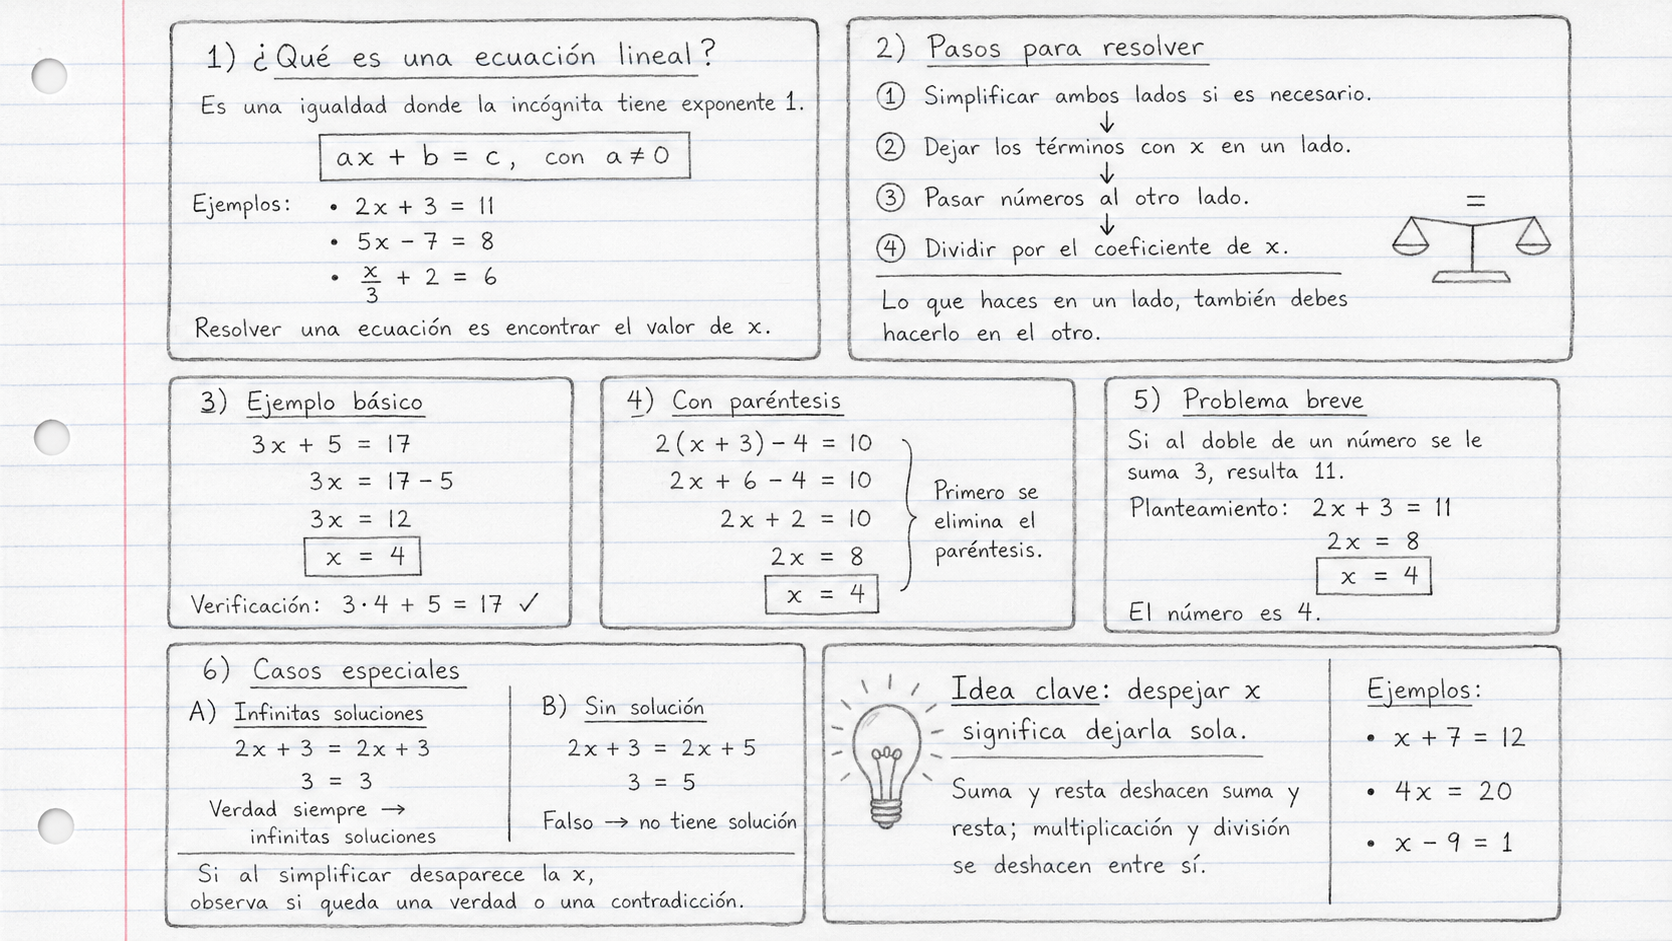 1) ¿Qué es una ecuación lineal?
Es una igualdad donde la incógnita tiene exponente 1.
ax + b = c, con a ≠ 0
Ejemplos: • 2x + 3 = 11
• 5x - 7 = 8
• x/3 + 2 = 6
Resolver una ecuación es encontrar el valor de x.
2) Pasos para resolver
① Simplificar ambos lados si es necesario.
↓
② Dejar los términos con x en un lado.
↓
③ Pasar números al otro lado.
↓
④ Dividir por el coeficiente de x.
=
Lo que haces en un lado, también debes
hacerlo en el otro.
3) Ejemplo básico
3x + 5 = 17
3x = 17 - 5
3x = 12
x = 4
Verificación: 3·4 + 5 = 17 ✓
4) Con paréntesis
2(x + 3) - 4 = 10
2x + 6 - 4 = 10
2x + 2 = 10
2x = 8
x = 4
Primero se
elimina el
paréntesis.
5) Problema breve
Si al doble de un número se le
suma 3, resulta 11.
Planteamiento: 2x + 3 = 11
2x = 8
x = 4
El número es 4.
6) Casos especiales
A) Infinitas soluciones
2x + 3 = 2x + 3
3 = 3
Verdad siempre →
infinitas soluciones
B) Sin solución
2x + 3 = 2x + 5
3 = 5
Falso → no tiene solución
Si al simplificar desaparece la x,
observa si queda una verdad o una contradicción.
Idea clave: despejar x
significa dejarla sola.
Suma y resta deshacen suma y
resta; multiplicación y división
se deshacen entre sí.
Ejemplos:
• x + 7 = 12
• 4x = 20
• x - 9 = 1